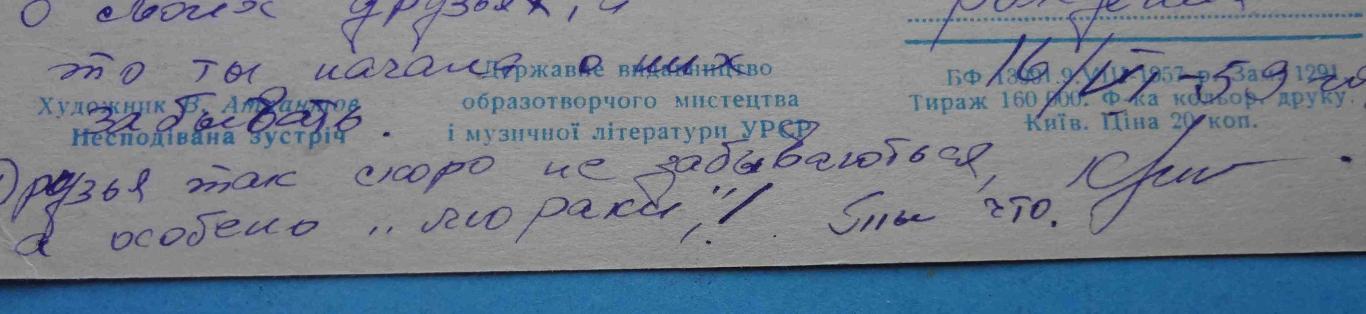 о своих друзьях, и
рождения
это ты начала о них
забывать.
16/VI-59 го
Державне видавництво
образотворчого мистецтва
і музичної літератури УРСР
Художник В.
Несподівана зустріч
БФ 9.VIII 1957 р. Зам. 1291.
Тираж 160 000. Ф-ка кольор. друку.
Київ. Ціна 20 коп.
Друзья так скоро не забываються,
а особено „моряки,"!
что.